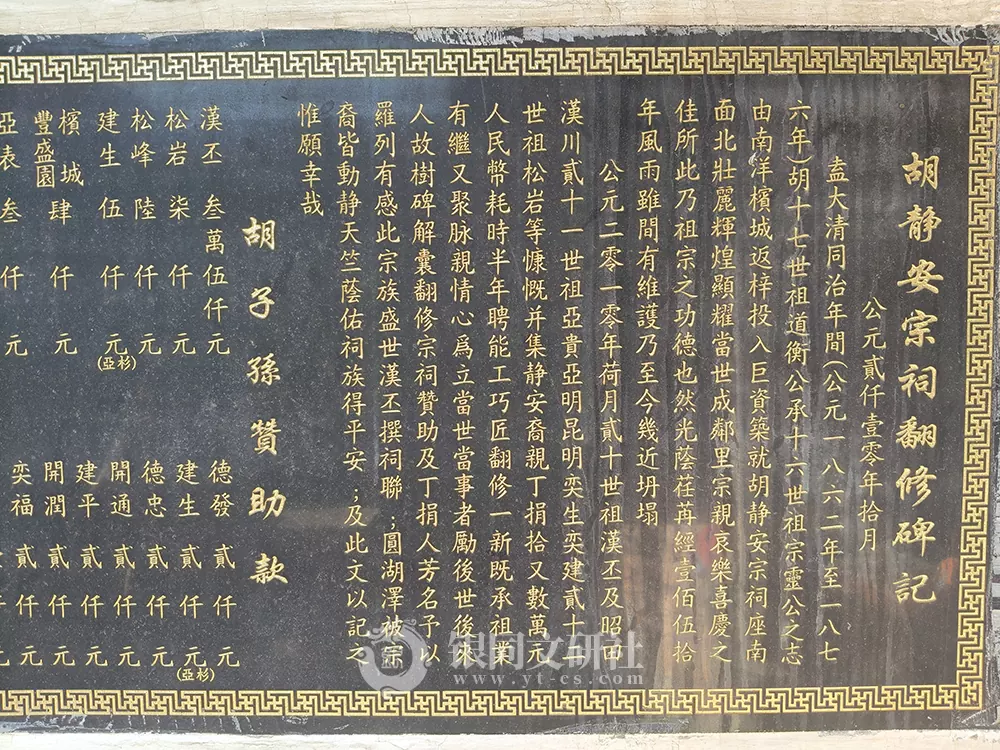 胡静安宗祠翻修碑記
公元貳仟壹零年拾月
盍大清同治年間(公元一八六二年至一八七
六年)胡十七世祖道衡公承十六世祖宗靈公之志
由南洋檳城返梓投入巨資築就胡静安宗祠座南
面北壯麗輝煌顯耀當世成鄰里宗親哀樂喜慶之
佳所此乃祖宗之功德也然光蔭荏苒經壹佰伍拾
年風雨雖間有維護乃至今幾近坍塌
公元二零一零年荷月貳十世祖漢丕及昭田
漢川貳十一世祖亞貴亞明昆明奕生奕建貳十二
世祖松岩等慷慨并集静安裔親丁捐拾又數萬元
人民幣耗時半年聘能工巧匠翻修一新既承祖業
有繼又聚脉親情心爲立當世當事者勵後世後來
人故樹碑解囊翻修宗祠贊助及丁捐人芳名予以
羅列有感此宗族盛世漢丕撰祠聯;圓湖澤被宗
裔皆動静天竺蔭佑祠族得平安;及此文以記之
惟願幸哉
胡子孫贊助款
漢丕 叁萬伍仟元
松岩 柒仟元
松峰 陸仟元
建生 伍仟元
(亞杉)
檳城
豐盛園 肆仟元
亞表 叁仟元
德發 貳仟元
建生 貳仟元
(亞杉)
德忠 貳仟元
開通 貳仟元
建平 貳仟元
開潤 貳仟元
奕福 貳仟元
银同文研社
www.yt-cs.com